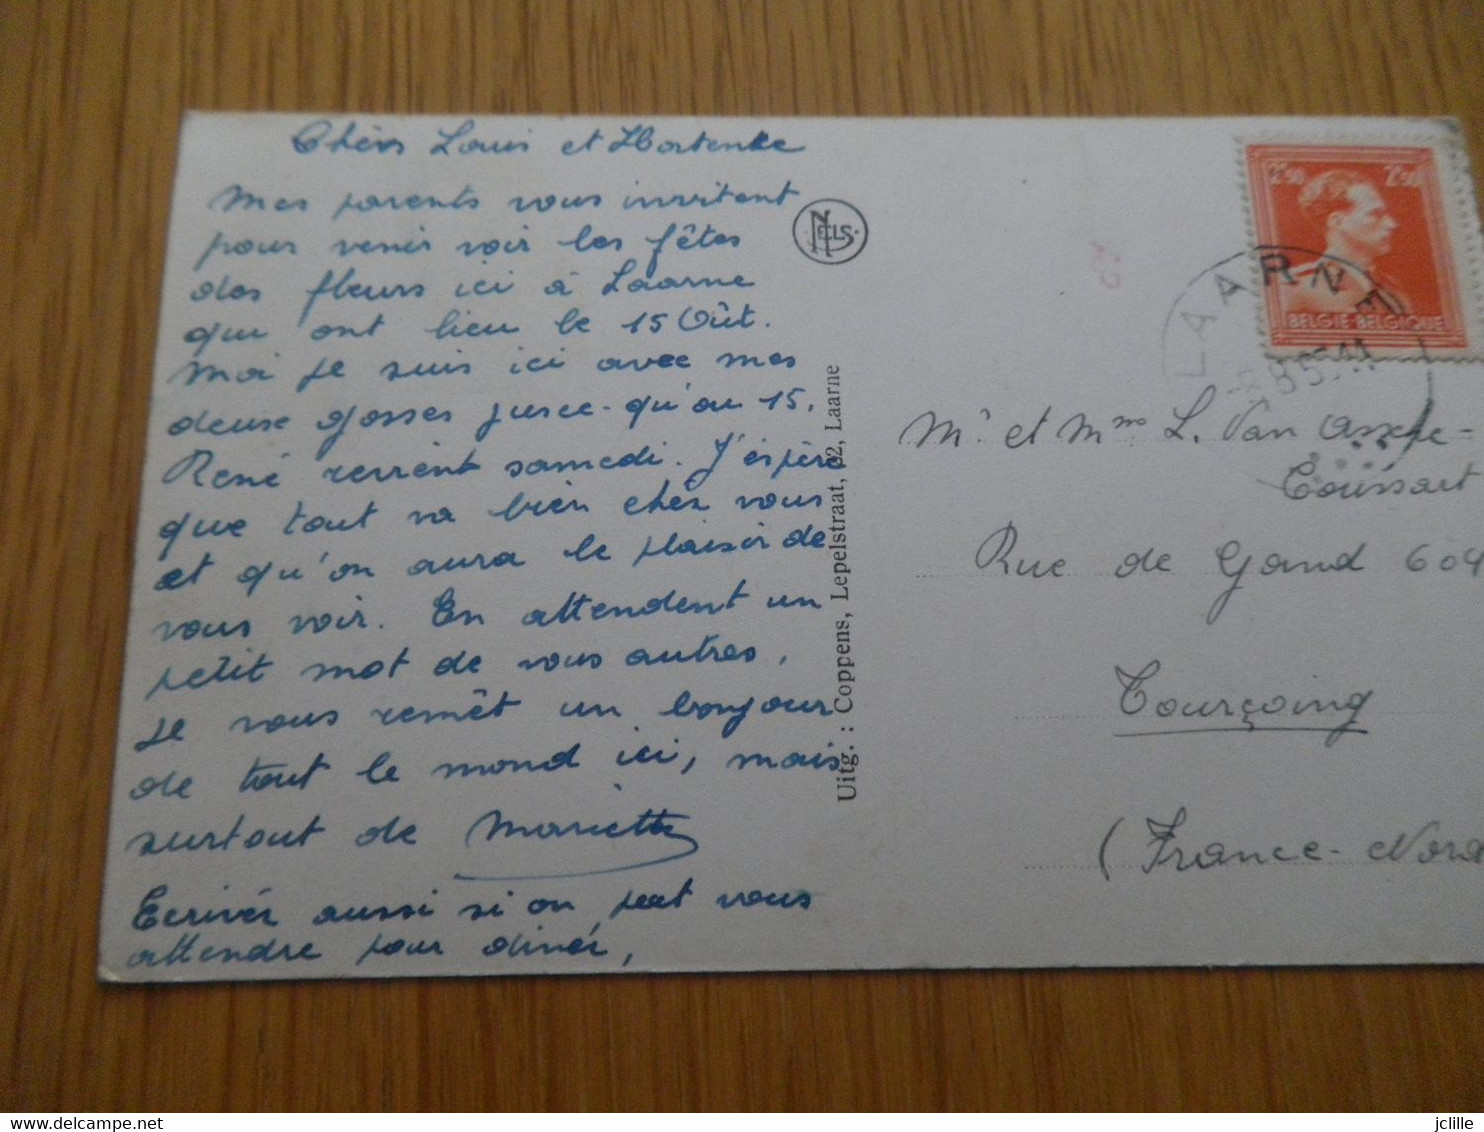 Chèrs Louis et Hortense
Mes parents vous invitent
pour venir voir les fêtes
des fleurs ici à Laarne
qui ont lieu le 15 Oût.
Moi je suis ici avec mes
deuse gosses jusce-qu'au 15.
René revient samedi. J'éspère
que tout va bien chez vous
et qu'on aura le plaisir de
vous voir. En attendent un
petit mot de vous autres,
je vous remêt un bonjour
de tout le mond ici, mais
surtout de Mariette
Ecrivér aussi si on peut vous
attendre pour dinér,
NELS
Uitg. : Coppens, Lepelstraat, 62, Laarne
2.50 2.50
BELGIE-BELGIQUE
LAARNE
Mr et Mme L. Van Assche-
Coussart
Rue de Gand 609
Tourçoing
(France-Nord
jclille